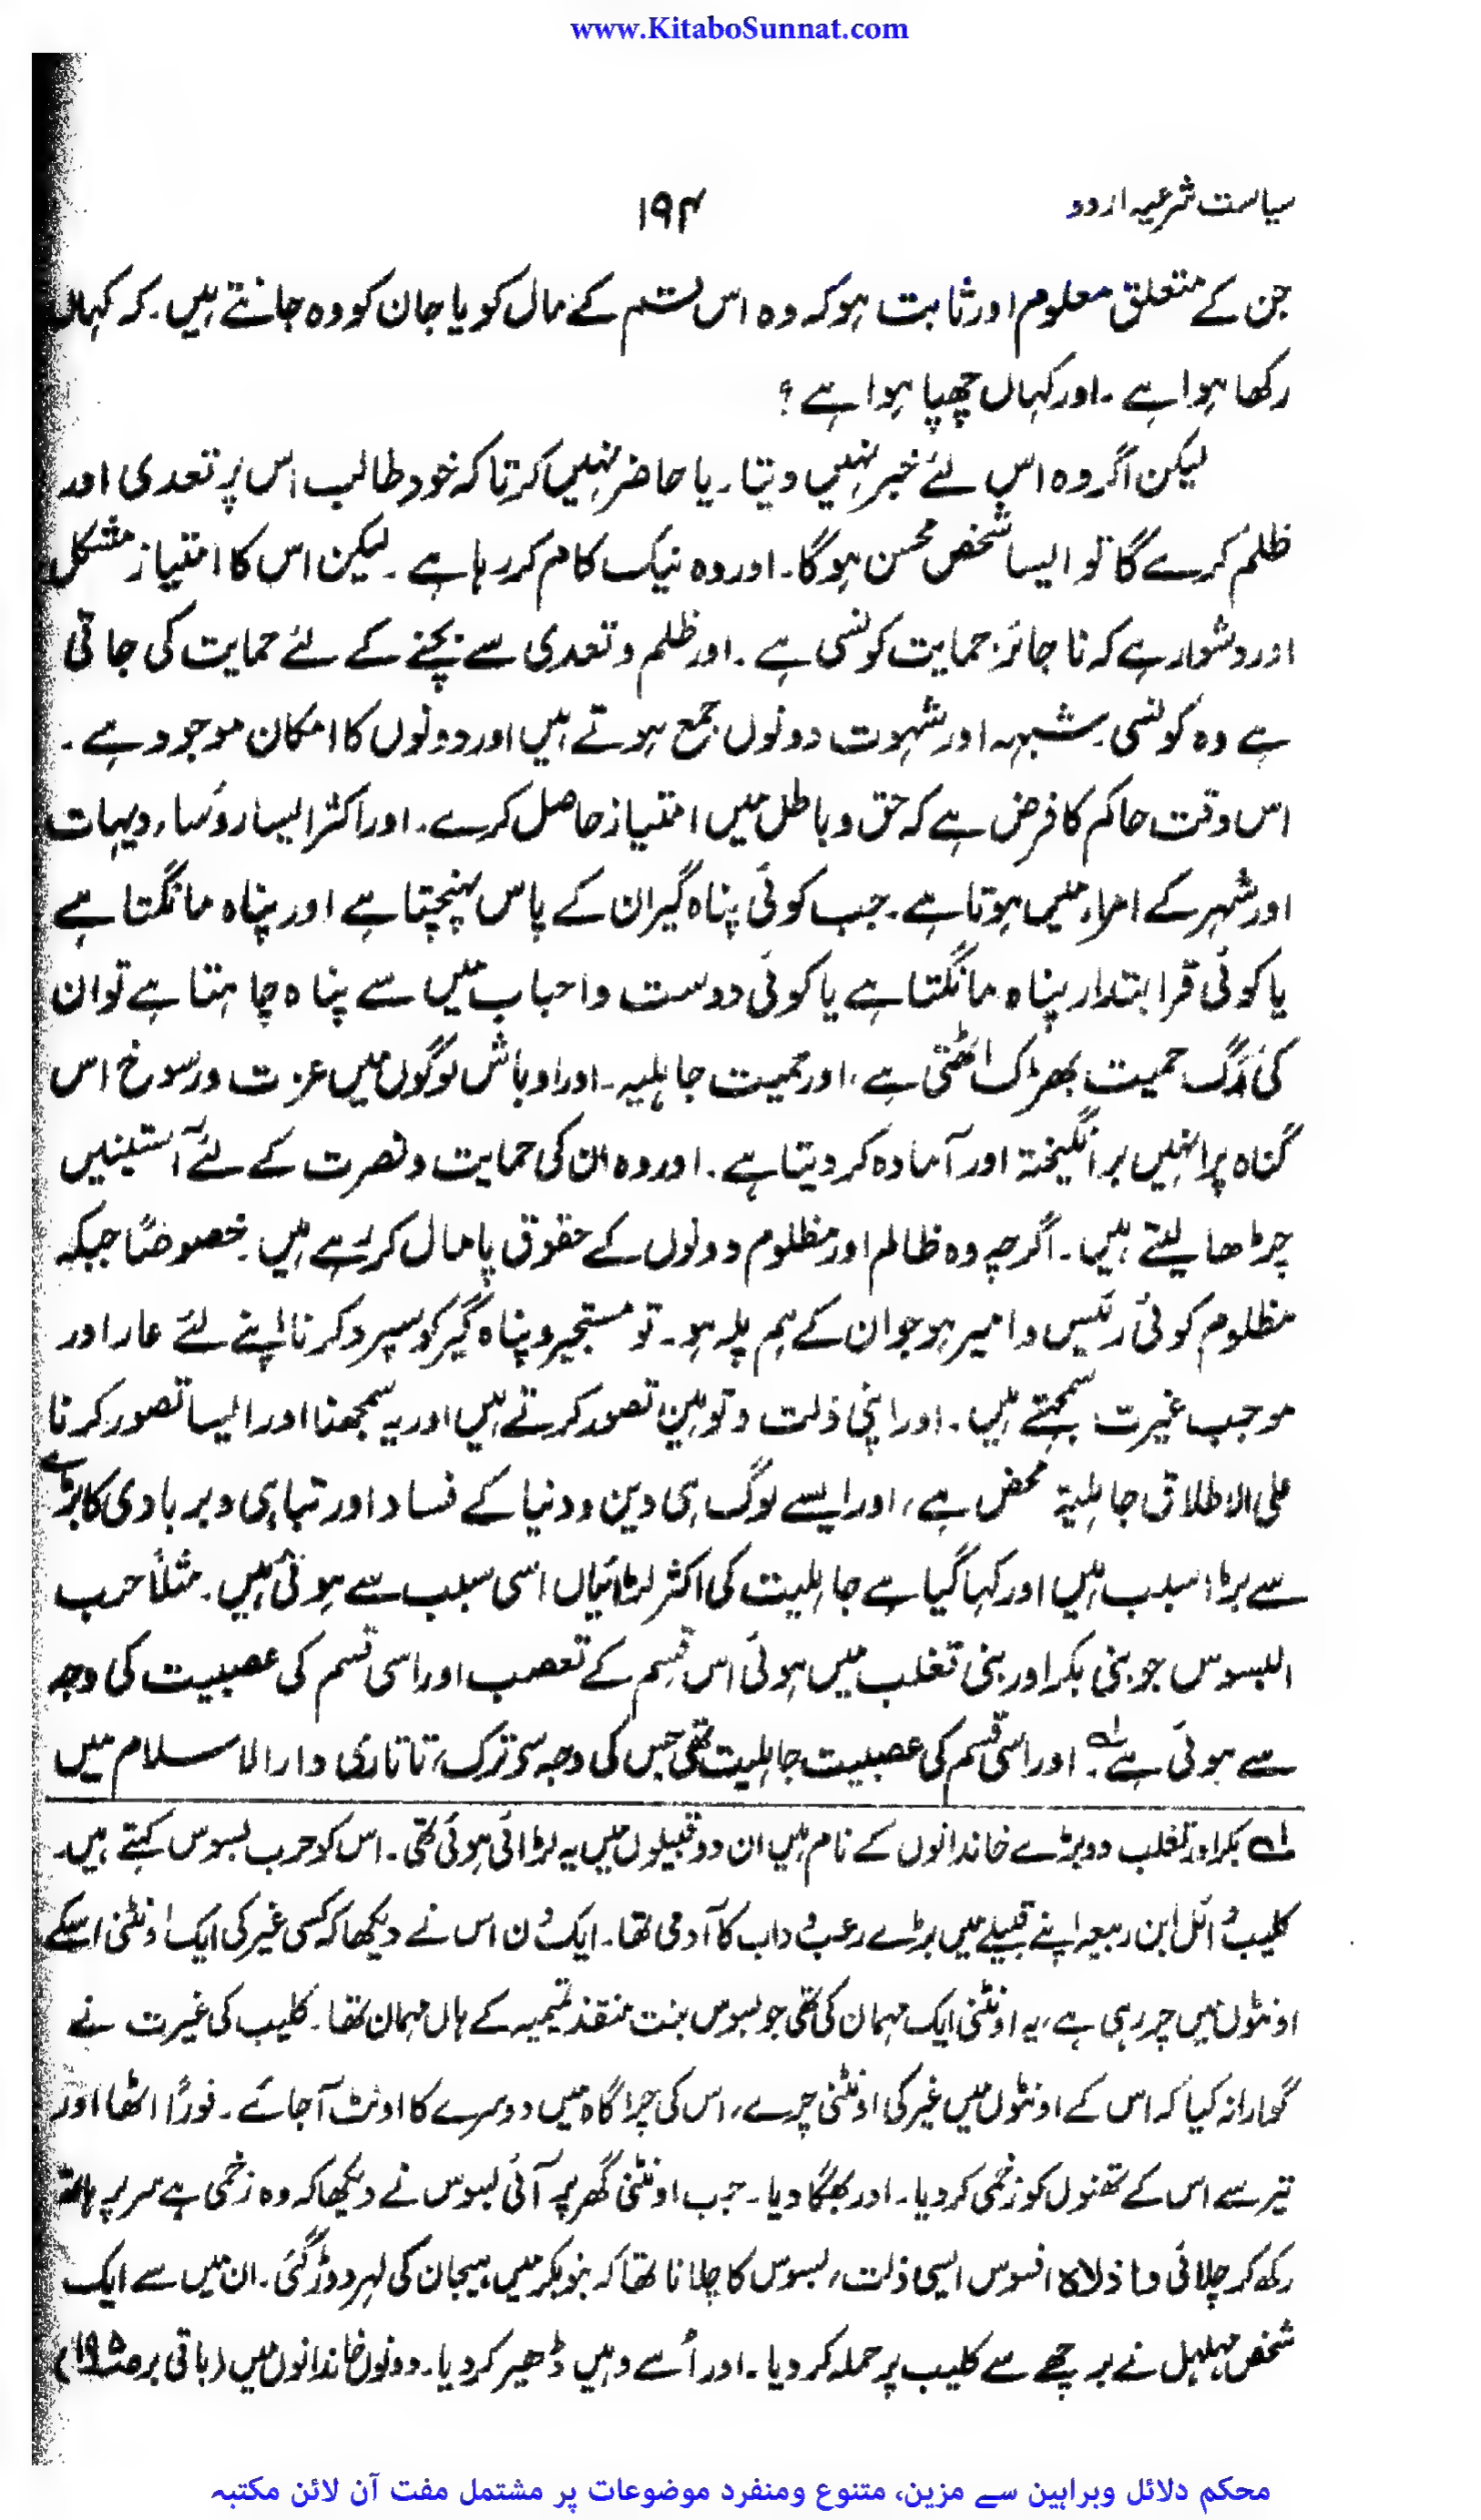 www.KitaboSunnat.com
سیاست شرعیہ اردو
۱۹۴
جن کے متعلق معلوم اور ثابت ہو کہ وہ اس قسم کے مال کو یا جان کو وہ جانتے ہیں۔ کہ کہاں
رکھا ہوا ہے۔ اور کہاں چھپا ہوا ہے؟
لیکن اگر وہ اس لئے خبر نہیں دیتا۔ یا حاضر نہیں کرتا کہ خود طالب اس پر تعدی اور
ظلم کرے گا تو ایسا شخص محسن ہوگا۔ اور وہ نیک کام کر رہا ہے۔ لیکن اس کا امتیاز مشکل
اور دشوار ہے کہ ناجائز حمایت کونسی ہے۔ اور ظلم و تعدی سے بچنے کے لئے حمایت کی جاتی
ہے وہ کونسی۔ شبہہ اور شہوت دونوں جمع ہوتے ہیں اور دونوں کا امکان موجود ہے۔
اس وقت حاکم کا فرض ہے کہ حق و باطل میں امتیاز حاصل کرے۔ اور اکثر ایسا رؤساء دیہات
اور شہر کے امراء میں ہوتا ہے۔ جب کوئی پناہ گیر ان کے پاس پہنچتا ہے اور پناہ مانگتا ہے
یا کوئی قرابتدار پناہ مانگتا ہے یا کوئی دوست و احباب میں سے پناہ چاہتا ہے تو ان
کی رگ حمیت بھڑک اٹھتی ہے، اور حمیت جاہلیہ۔ اور اوباش لوگوں میں عزت و رسوخ اس
گناہ پر انہیں برانگیختہ اور آمادہ کر دیتا ہے۔ اور وہ ان کی حمایت و نصرت کے لئے آستینیں
چڑھا لیتے ہیں۔ اگرچہ وہ ظالم اور مظلوم دونوں کے حقوق پامال کر رہے ہیں۔ خصوصًا جبکہ
مظلوم کوئی رئیس و امیر ہو جو ان کے ہم پلہ ہو۔ تو مستجیر و پناہ گیر کو سپرد کرنا اپنے لئے عار اور
موجب غیرت سمجھتے ہیں۔ اور اپنی ذلت و توہین تصور کرتے ہیں اور یہ سمجھنا اور ایسا تصور کرنا
علی الاطلاق جاہلیۃ محض ہے، اور ایسے لوگ ہی دین و دنیا کے فساد اور تباہی و بربادی کا بڑے
سے بڑا سبب ہیں اور کہا گیا ہے جاہلیت کی اکثر لڑائیاں اسی سبب سے ہوئی ہیں۔ مثلاً حرب
البسوس جو بنی بکر اور بنی تغلب میں ہوئی اس قسم کے تعصب اور اسی قسم کی عصبیت کی وجہ
سے ہوئی ہے۔ لہ اور اسی قسم کی عصبیت جاہلیت تھی جس کی وجہ سے ترک، تاتاری دارالاسلام میں
لہ بکر اور تغلب دو بڑے خاندانوں کے نام ہیں ان دو قبیلوں میں یہ لڑائی ہوئی تھی۔ اس کو حرب بسوس کہتے ہیں۔
کلیب وائل ابن ربیعہ اپنے قبیلے میں بڑے رعب و داب کا آدمی تھا۔ ایک دن اس نے دیکھا کہ کسی غیر کی ایک اونٹنی اسکے
اونٹوں میں چر رہی ہے، یہ اونٹنی ایک مہمان کی تھی جو بسوس بنت منقذ تمیمیہ کے ہاں مہمان تھا۔ کلیب کی غیرت نے
گوارا نہ کیا کہ اس کے اونٹوں میں غیر کی اونٹنی چرے، اس کی چراگاہ میں دوسرے کا اونٹ آ جائے۔ فورًا اٹھا اور
تیر سے اس کے تھنوں کو زخمی کر دیا۔ اور بھگا دیا۔ جب اونٹنی گھر پر آئی بسوس نے دیکھا کہ وہ زخمی ہے سر پر ہاتھ
رکھ کر چلائی واذلاہ افسوس ایسی ذلت، بسوس کا چلانا تھا کہ بنو بکر میں ہیجان کی لہر دوڑ گئی۔ ان میں سے ایک
شخص مہلہل نے برچھے سے کلیب پر حملہ کر دیا۔ اور اُسے وہیں ڈھیر کر دیا۔ دونوں خاندانوں میں (باقی بر ص۱۹۵)
محکم دلائل وبراہین سے مزین، متنوع ومنفرد موضوعات پر مشتمل مفت آن لائن مکتبہ